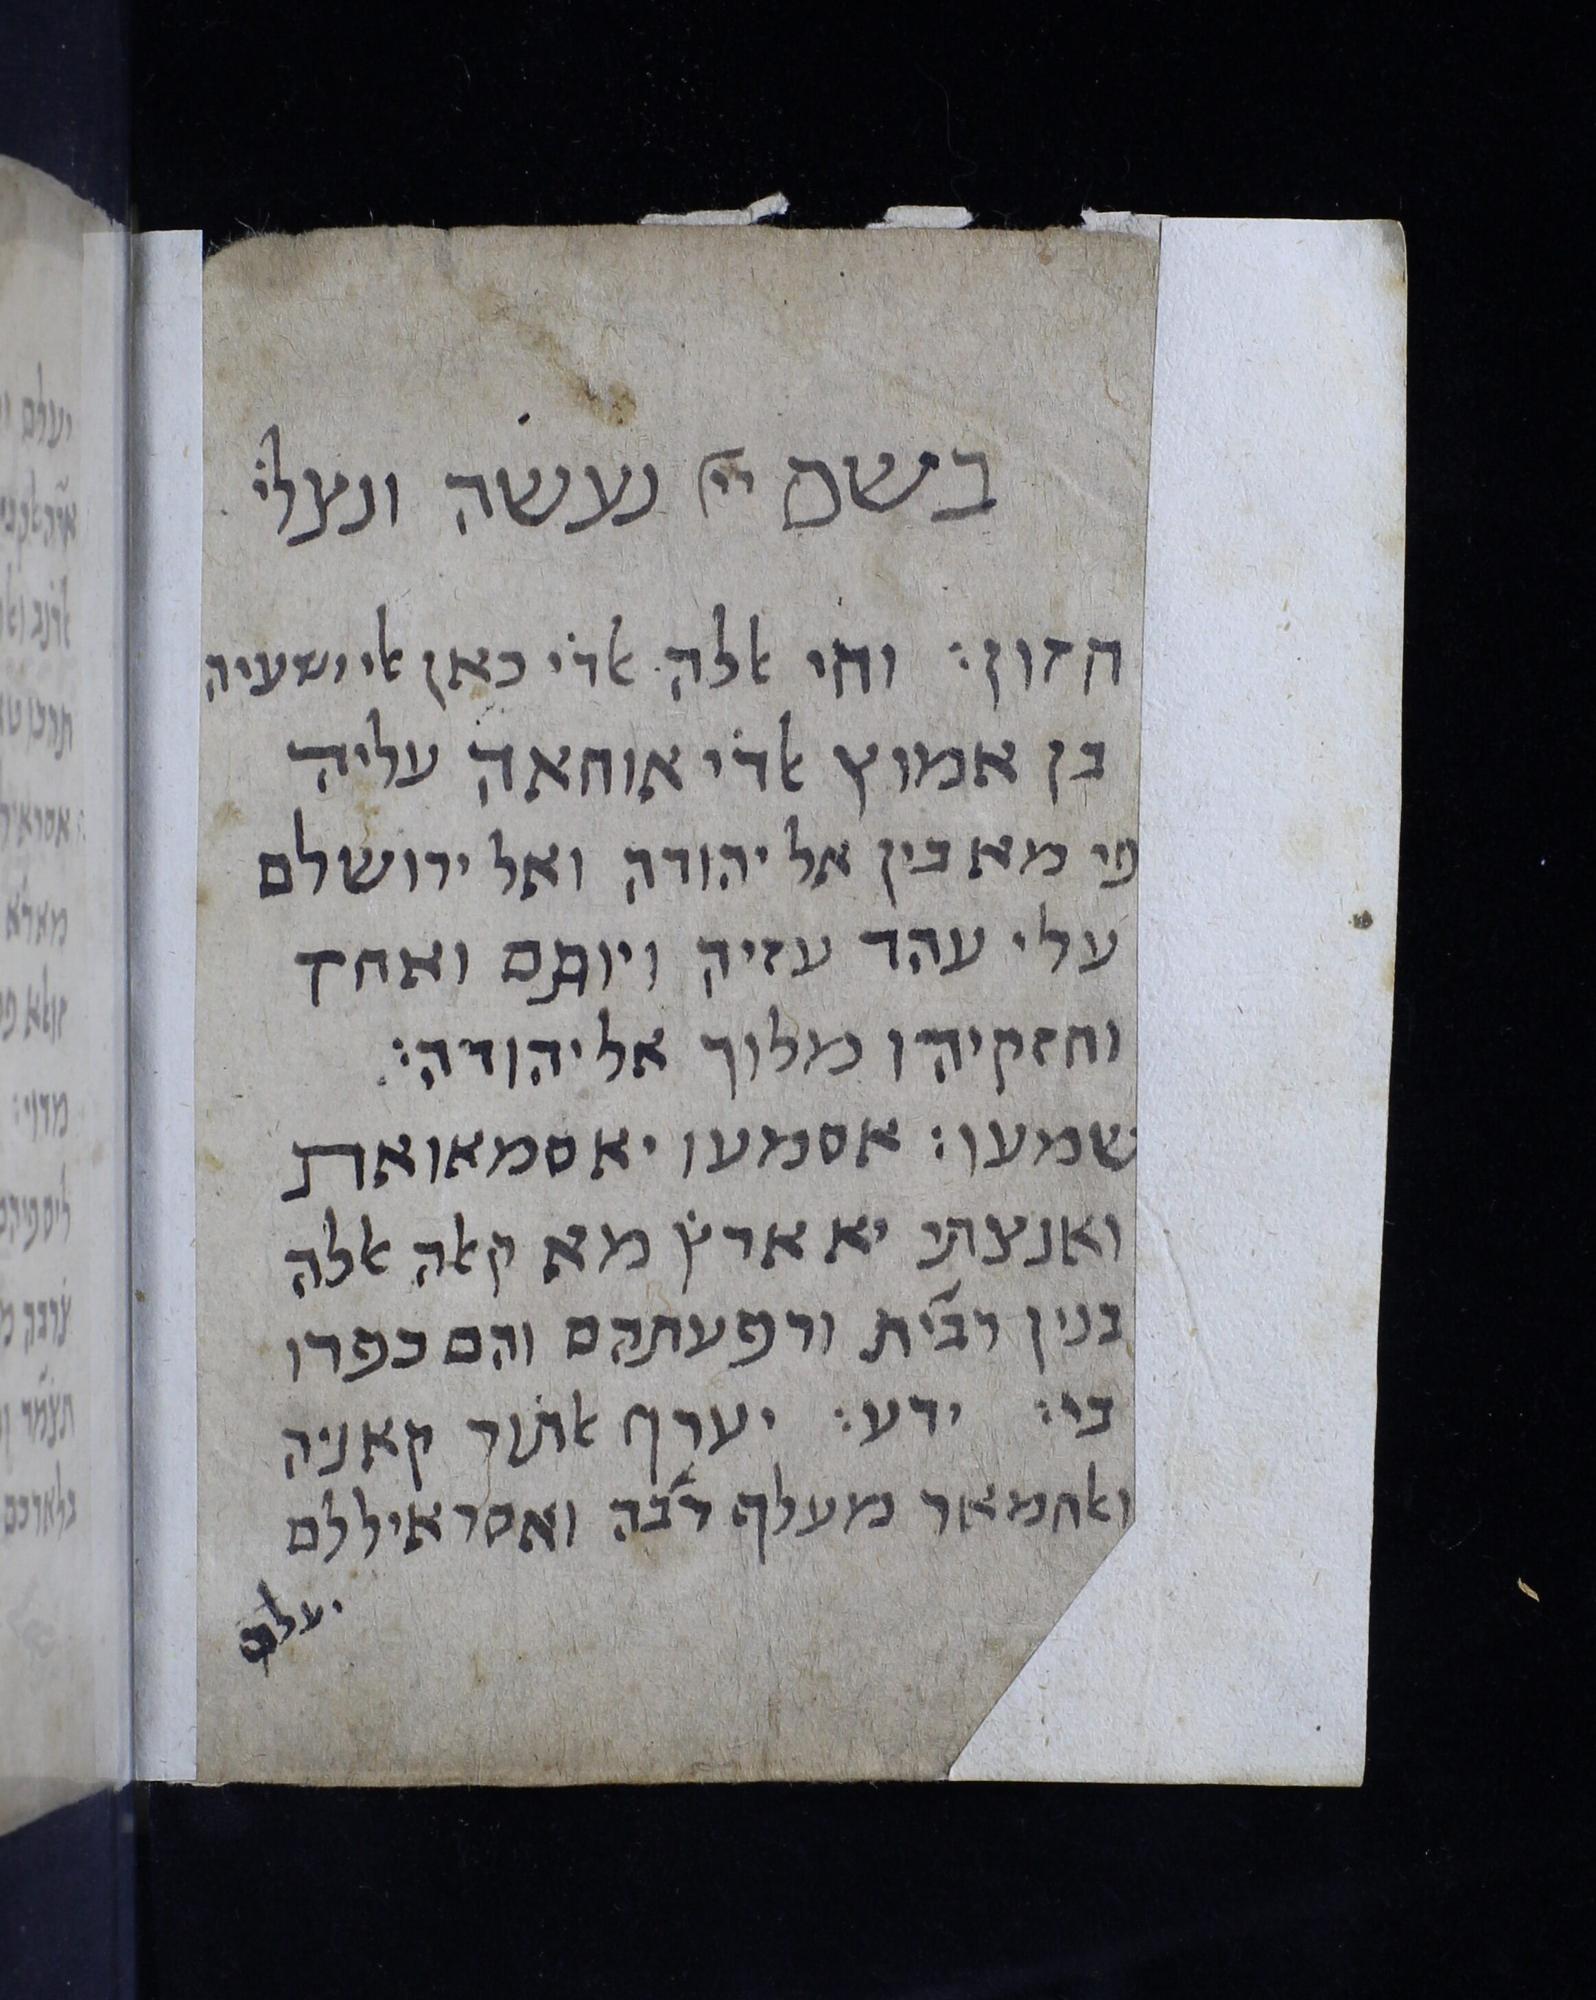 בשם ייי נעשה ונצלי׃
חזון׃ וחי אללה אלדׄי כאן אלי ישעיה
בן אמוץ אלדׄי אוחאה עליה
פי מא בין אל יהודה ואל ירושלם
עלי עהד עזיה ויותם ואחז
וחזקיהו מלוך אל יהודה׃
שמעו׃ אסמעו יא סמאואת
ואנצתי יא ארץׄ מא קאלה אללה
בנין רבית ורפעתהם והם כפרו
בי׃ ידע׃ יערף אלתׄור קאניה
ואחמאר מעלף רבה ואסראיל לם
יעלם